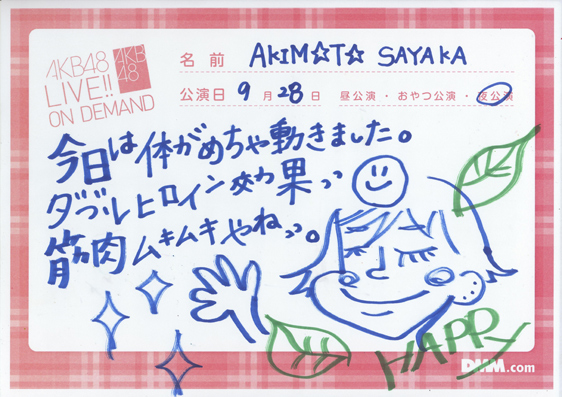 AKB48
LIVE!!
ON DEMAND
AKB
48
名前 AKIM☆T☆ SAYAKA
公演日 9月28日 昼公演・おやつ公演・夜公演
今日は体がめちゃ動きました。
ダブルヒロイン効果っっ
筋肉ムキムキやねっっ。
HAPPY
DMM.com